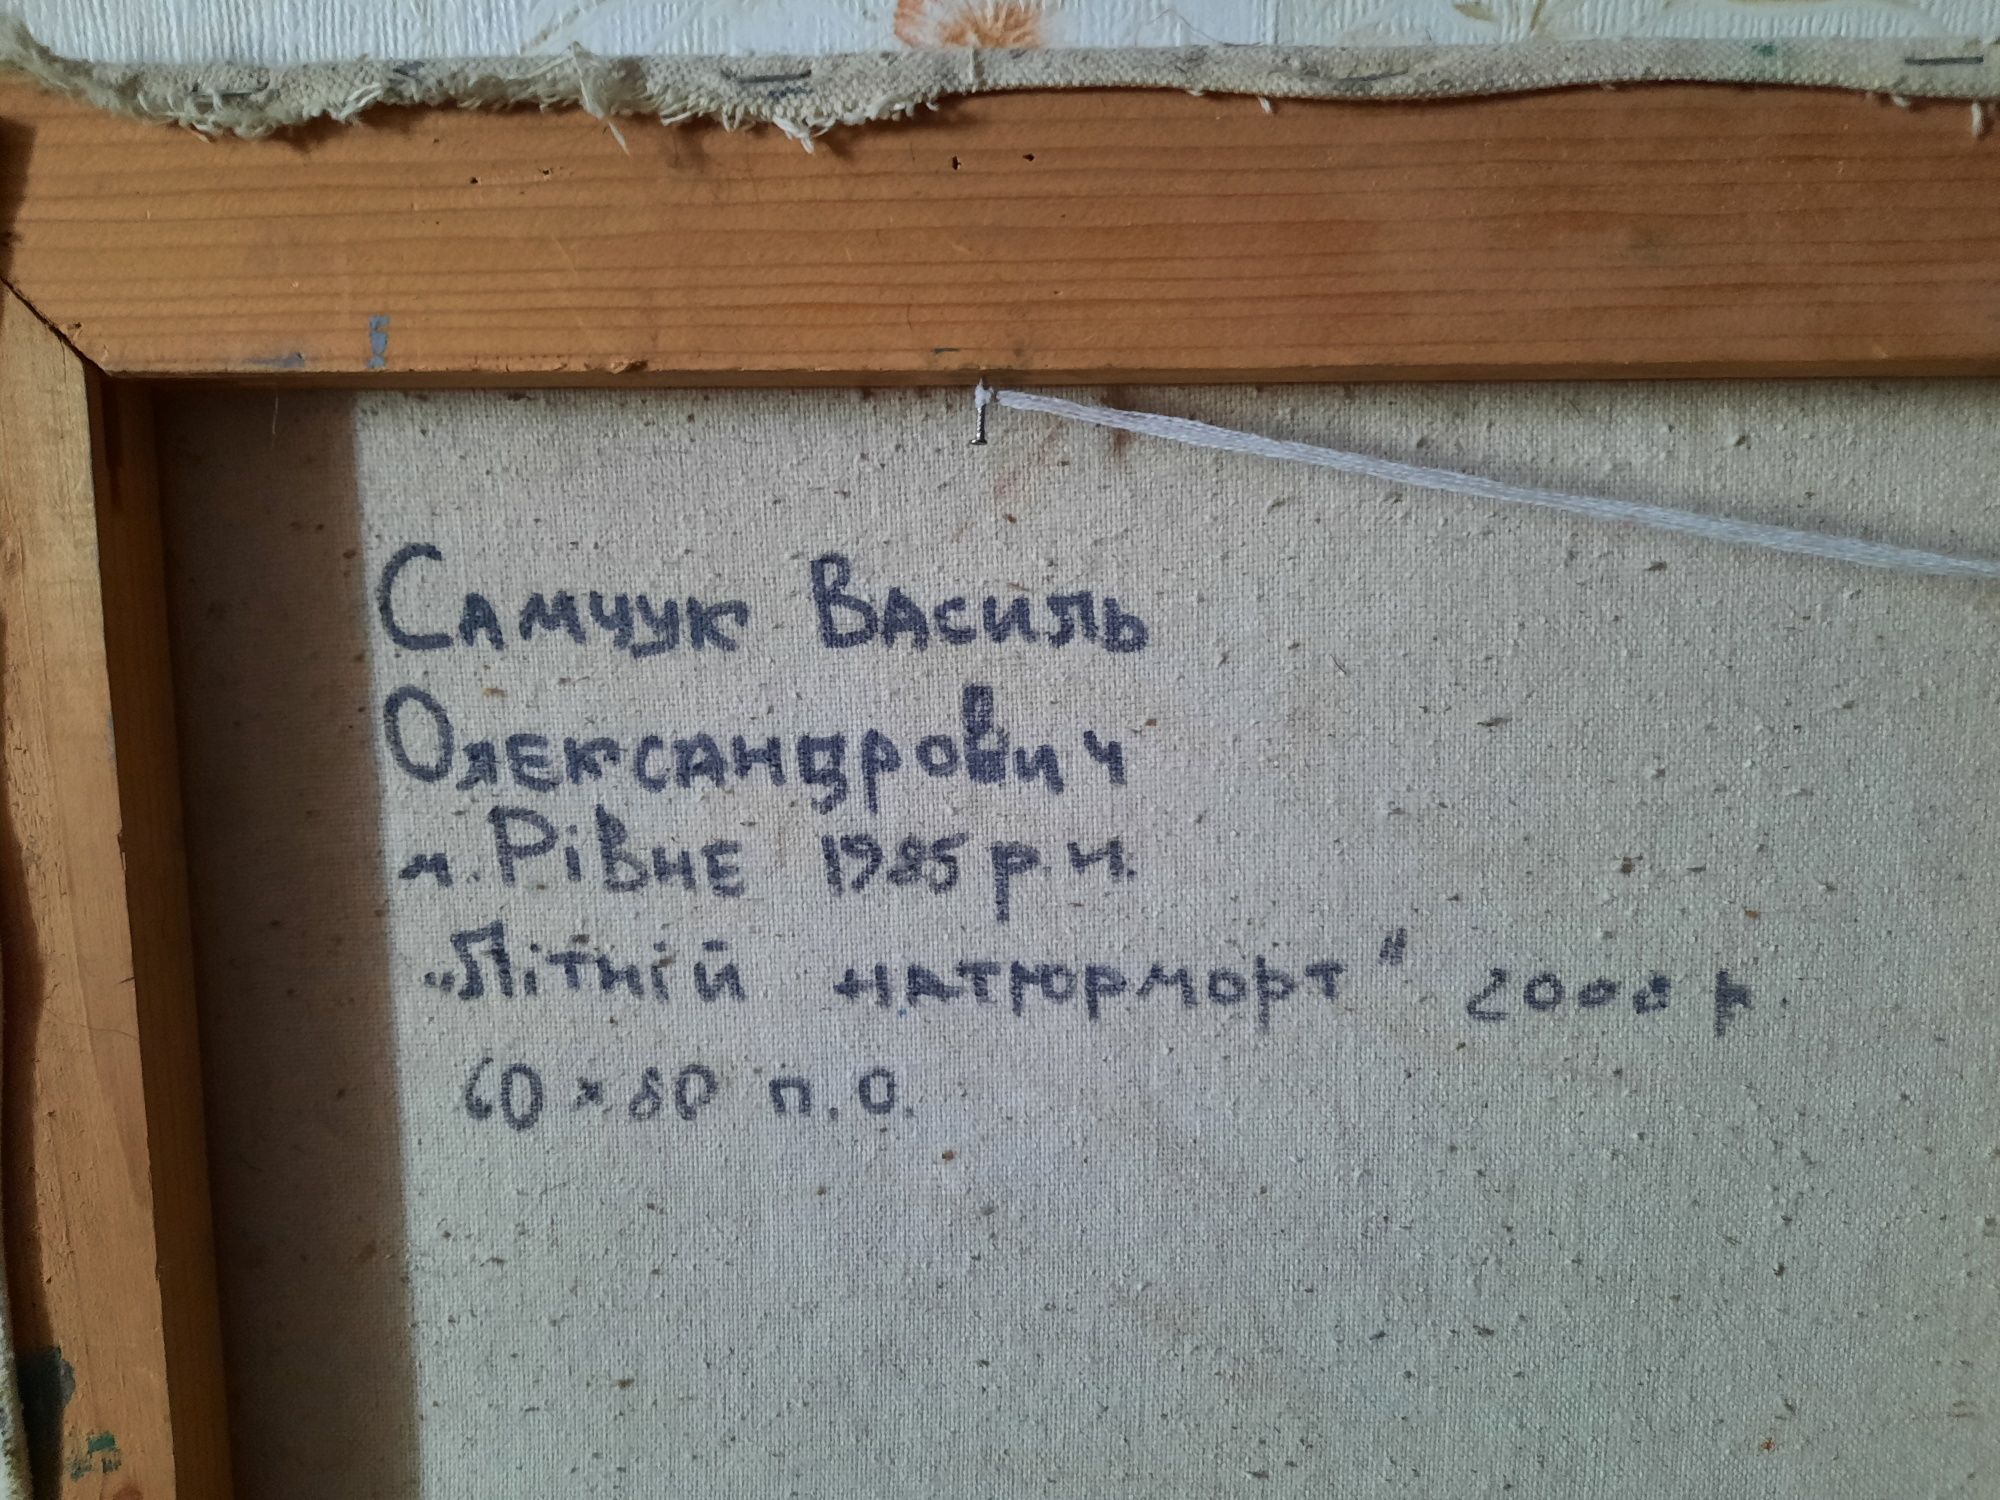 Самчук Василь
Олександрович
м. Рівне 1985 р.н.
„Літній натюрморт" 2000 р.
60×80 п.о.